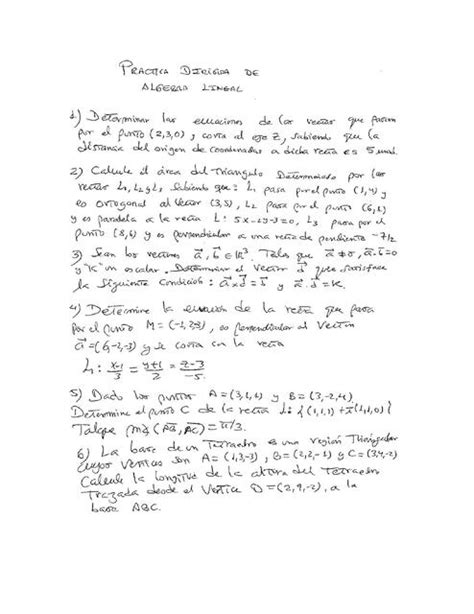 PRACTICA DIRIGIDA DE
ALGEBRA LINEAL
1) Determinar las ecuaciones de las rectas que pasan
por el punto (2,3,0) y corta al eje Z, sabiendo que la
distancia del origen de coordenadas a dicha recta es 5 unid.
2) Calcule el área del triángulo Determinado por las
rectas L₁, L₂ y L₃ sabiendo que: L₁ pasa por el punto (1,4) y
es ortogonal al vector (3,5), L₂ pasa por el punto (6,1)
y es paralela a la recta L: 5x-2y-3=0, L₃ pasa por el
punto (8,6) y es perpendicular a una recta de pendiente -7/2
3) Sean los vectores a⃗, b⃗ ∈ ℝ³. Tales que a⃗ ≠ 0, a⃗.b⃗=0
y "K" un escalar. Determinar el vector d⃗ que satisface
la siguiente condición: a⃗xd⃗=b⃗ y a⃗.d⃗=K.
4) Determine la ecuación de la recta que pasa
por el punto M = es perpendicular al Vector
a⃗=(6,-2,-3) y se corta con la recta
L: x-1/3 = y+1/2 = z-3/-5.
5) Dado los puntos A=(3,1,1) y B=(3,-2,4)
Determine el punto C de la recta L: {(1,1,1) + (1,1,0)}
Tal que m∡(AB, AC)=π/3.
6) La base de un Tetraedro es una región Triángular
cuyos vertices son A=(1,3,-3), B=(2,2,-1) y C=(3,4,-2)
Calcule la longitud de la altura del Tetraedro
Trazada desde el Vertice D=(2,9,-3), a la
base ABC.